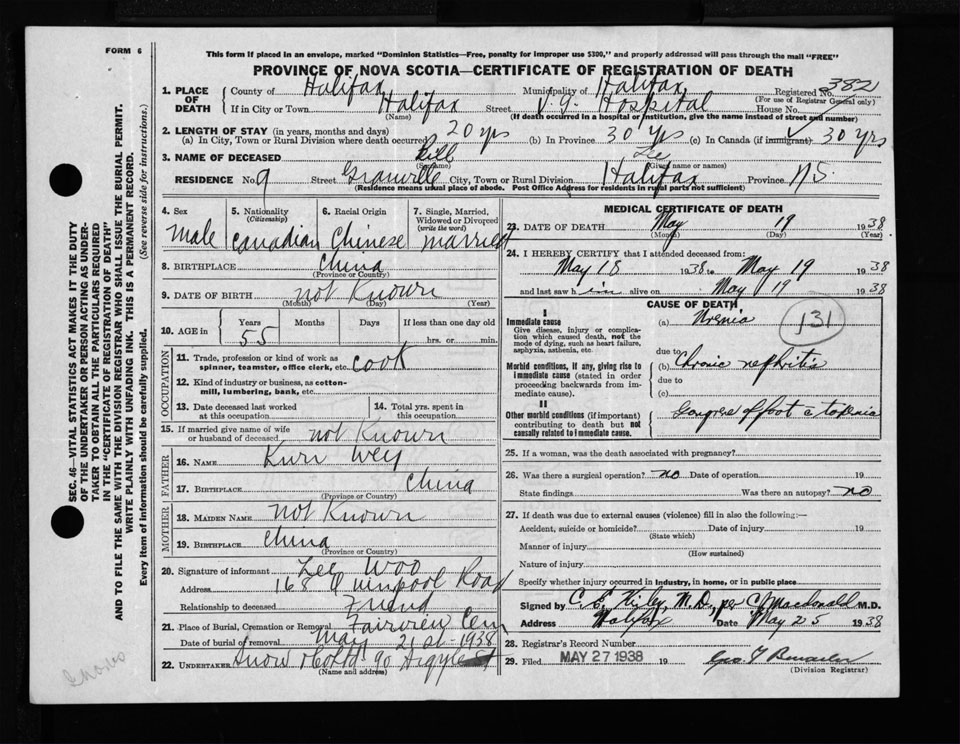 FORM 6
This form if placed in an envelope, marked "Dominion Statistics—Free, penalty for improper use $300," and properly addressed will pass through the mail "FREE"
PROVINCE OF NOVA SCOTIA—CERTIFICATE OF REGISTRATION OF DEATH
1. PLACE OF DEATH { County of Halifax Municipality of Halifax Registered No. 382
(For use of Registrar General only)
If in City or Town Halifax Street V. G. Hospital House No.
(Name) (If death occurred in a hospital or institution, give the name instead of street and number)
2. LENGTH OF STAY (in years, months and days)
(a) In City, Town or Rural Division where death occurred 20 yrs (b) In Province 30 yrs (c) In Canada (if immigrant) 30 yrs
3. NAME OF DECEASED Bill Lee
(Surname) (Given name or names)
RESIDENCE No. 9 Street Granville City, Town or Rural Division Halifax Province N.S.
(Residence means usual place of abode. Post Office Address for residents in rural parts not sufficient)
4. Sex Male
5. Nationality (Citizenship) Canadian
6. Racial Origin Chinese
7. Single, Married, Widowed or Divorced (write the word) married
8. BIRTHPLACE China
(Province or Country)
9. DATE OF BIRTH not Known
(Month) (Day) (Year)
10. AGE in { Years Months Days If less than one day old
55 hrs. or min.
OCCUPATION
11. Trade, profession or kind of work as spinner, teamster, office clerk, etc. cook
12. Kind of industry or business, as cotton-mill, lumbering, bank, etc.
13. Date deceased last worked at this occupation
14. Total yrs. spent in this occupation
15. If married give name of wife or husband of deceased not Known
FATHER
16. NAME Kurr Wey
17. BIRTHPLACE China
(Province or Country)
MOTHER
18. MAIDEN NAME not Known
19. BIRTHPLACE China
(Province or Country)
20. Signature of informant Lee Woo
Address 168 Quinpool Road
Relationship to deceased Friend
21. Place of Burial, Cremation or Removal Fairview Cem
Date of burial or removal May 21 st - 1938
22. UNDERTAKER Snow & Co Ltd 90 Argyle St
(Name and address)
MEDICAL CERTIFICATE OF DEATH
23. DATE OF DEATH May 19 1938
(Month) (Day) (Year)
24. I HEREBY CERTIFY that I attended deceased from:
May 18 1938 to May 19 1938
and last saw him alive on May 19 1938
CAUSE OF DEATH
I
Immediate cause
Give disease, injury or complication which caused death, not the mode of dying, such as heart failure, asphyxia, asthenia, etc.
(a) Uremia 131
due to
Morbid conditions, if any, giving rise to immediate cause (stated in order proceeding backwards from immediate cause).
(b) Chronic nephritis
due to
(c)
II
Other morbid conditions (if important) contributing to death but not causally related to immediate cause.
Gangrene of foot c toxemia
25. If a woman, was the death associated with pregnancy?
26. Was there a surgical operation? no Date of operation 19
State findings Was there an autopsy? no
27. If death was due to external causes (violence) fill in also the following:—
Accident, suicide or homicide? Date of injury 19
(State which)
Manner of injury
(How sustained)
Nature of injury
Specify whether injury occurred in industry, in home, or in public place
Signed by M.D., per C Macdonald M.D.
Address Halifax Date May 25 1938
28. Registrar's Record Number
29. Filed MAY 27 1938 19
(Division Registrar)
SEC. 46—VITAL STATISTICS ACT MAKES IT THE DUTY
OF THE UNDERTAKER OR PERSON ACTING AS UNDER-
TAKER TO OBTAIN ALL THE PARTICULARS REQUIRED
IN THE "CERTIFICATE OF REGISTRATION OF DEATH"
AND TO FILE THE SAME WITH THE DIVISION REGISTRAR WHO SHALL ISSUE THE BURIAL PERMIT.
WRITE PLAINLY WITH UNFADING INK. THIS IS A PERMANENT RECORD.
Every item of information should be carefully supplied. (See reverse side for instructions.)